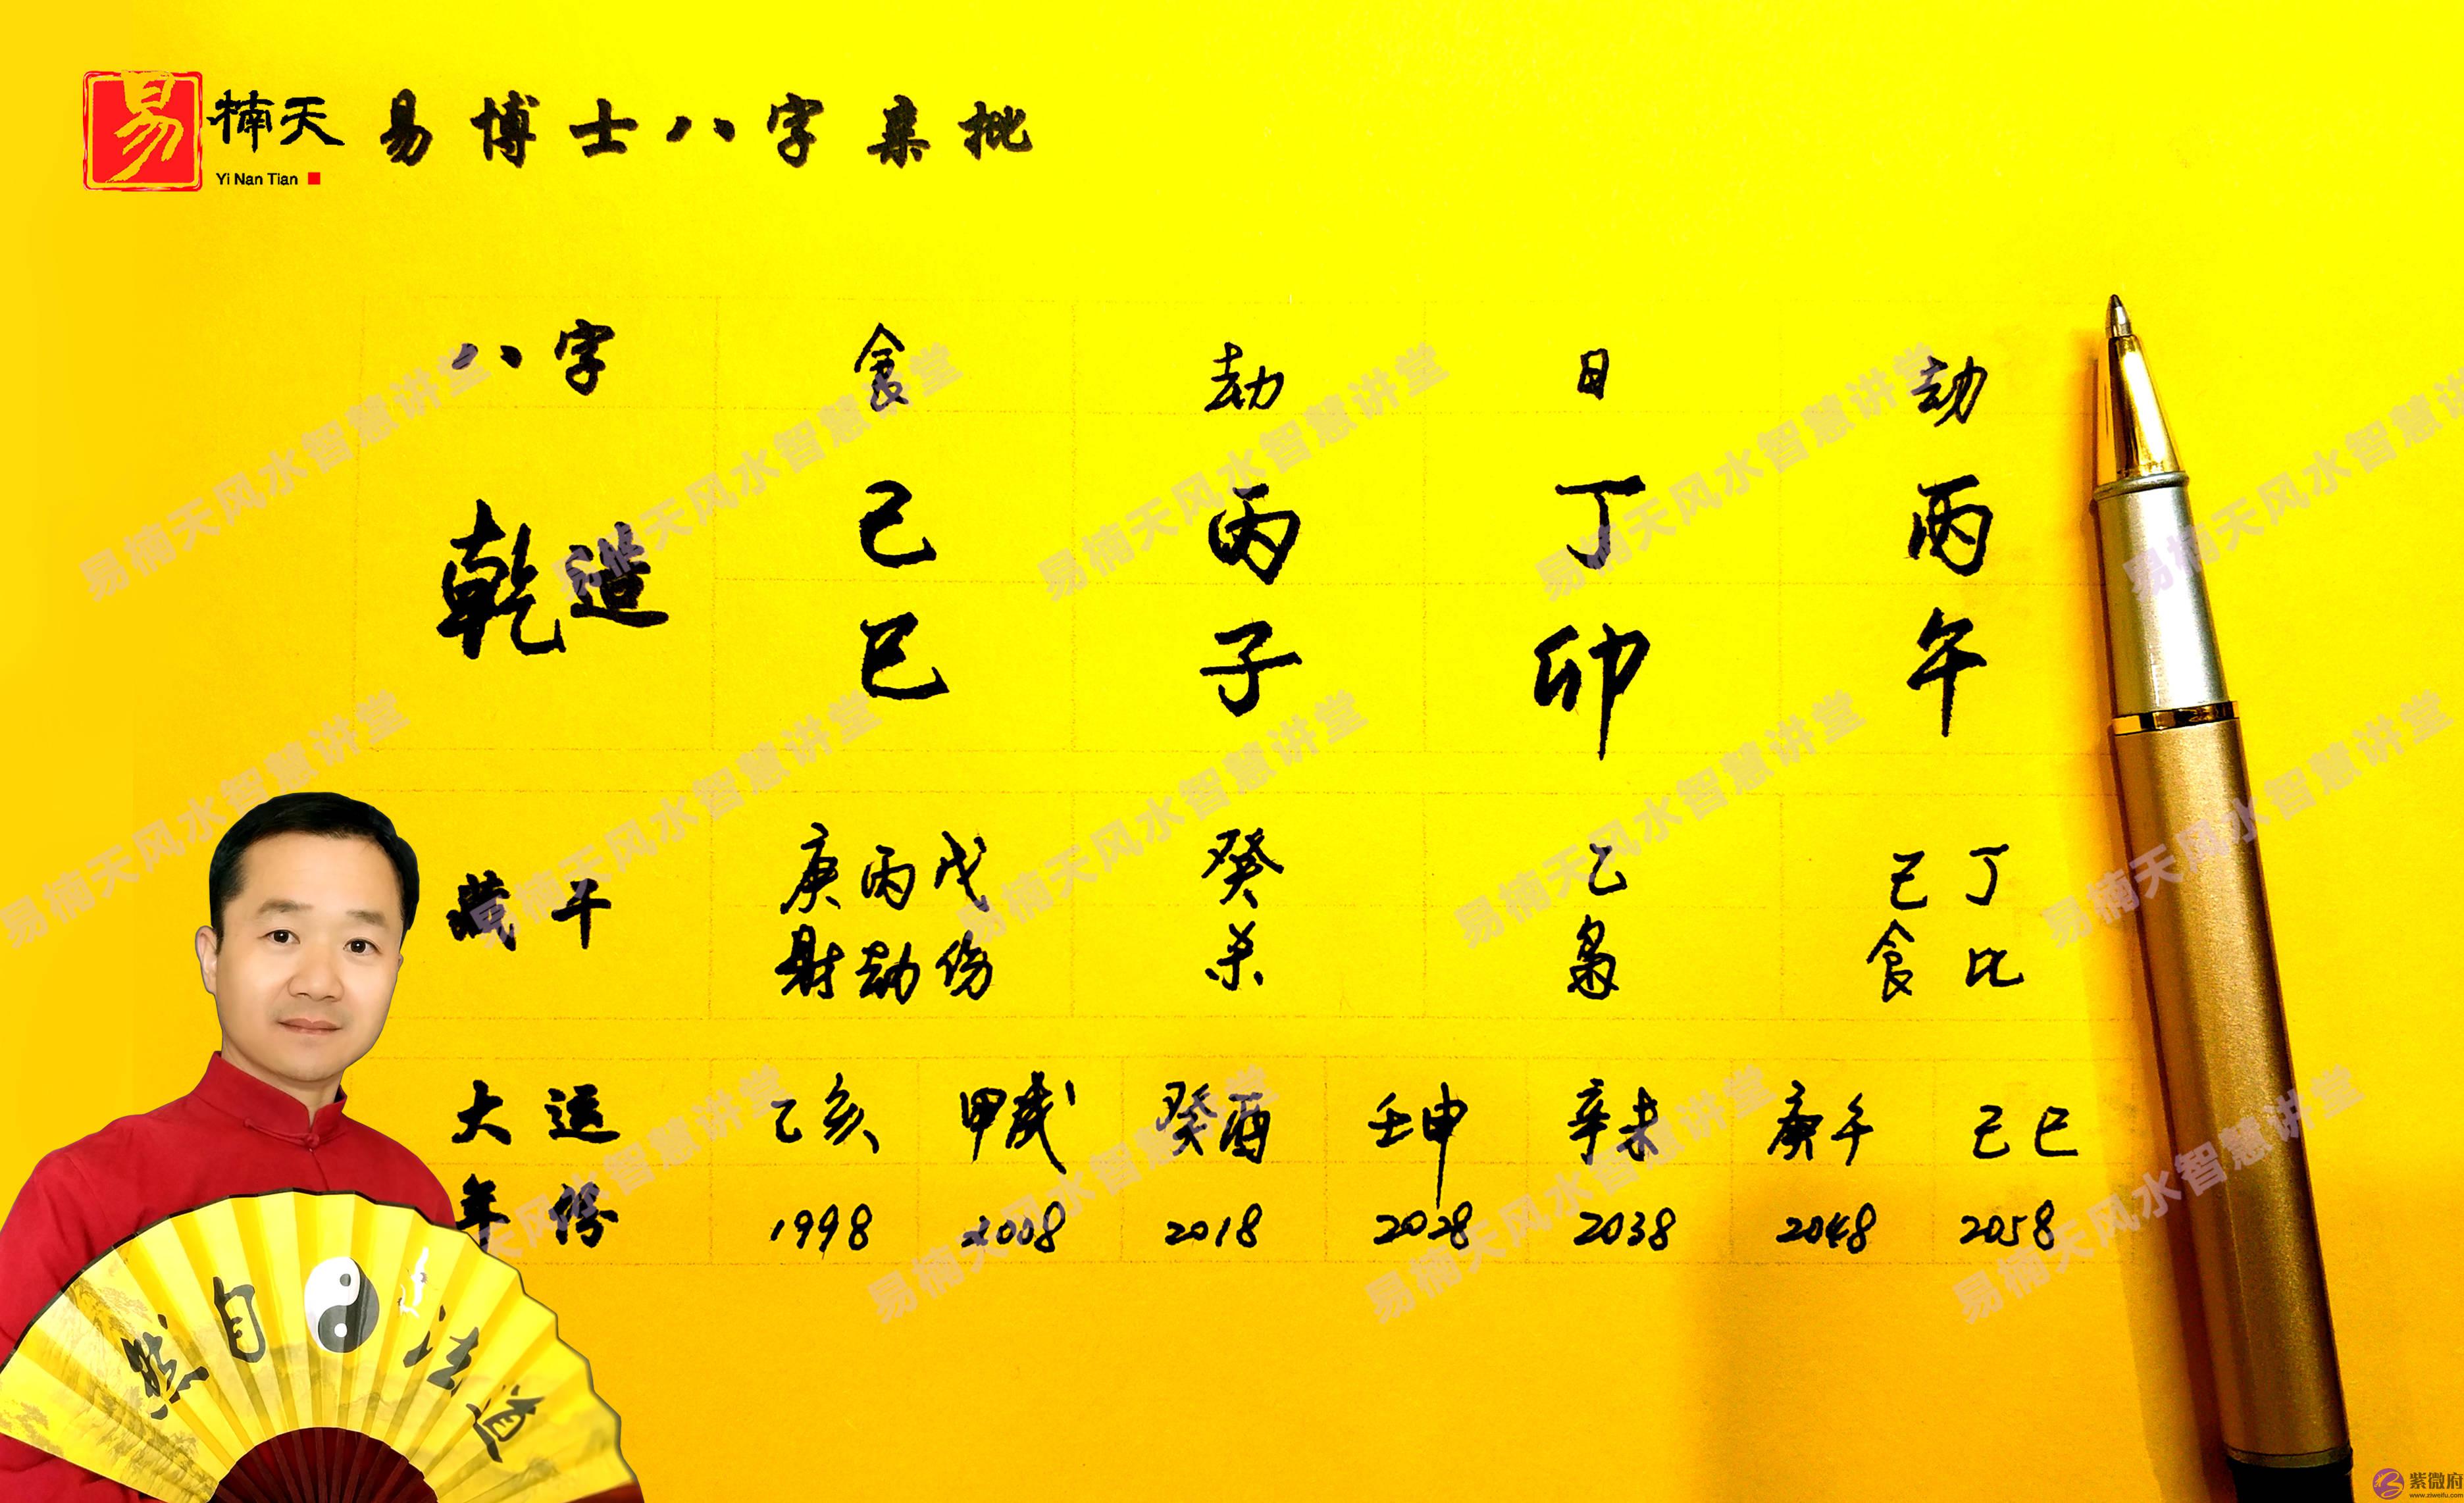 易 楠天 易博士八字亲批
Yi Nan Tian
八字 食 劫 日 劫
乾造 己 丙 丁 丙
巳 子 卯 午
藏干 庚丙戊 癸 乙 己丁
财劫伤 杀 枭 食比
大运 乙亥 甲戌 癸酉 壬申 辛未 庚午 己巳
年份 1998 2008 2018 2028 2038 2048 2058
然自法道
易楠天风水智慧讲堂
紫微府
www.ziweifu.com